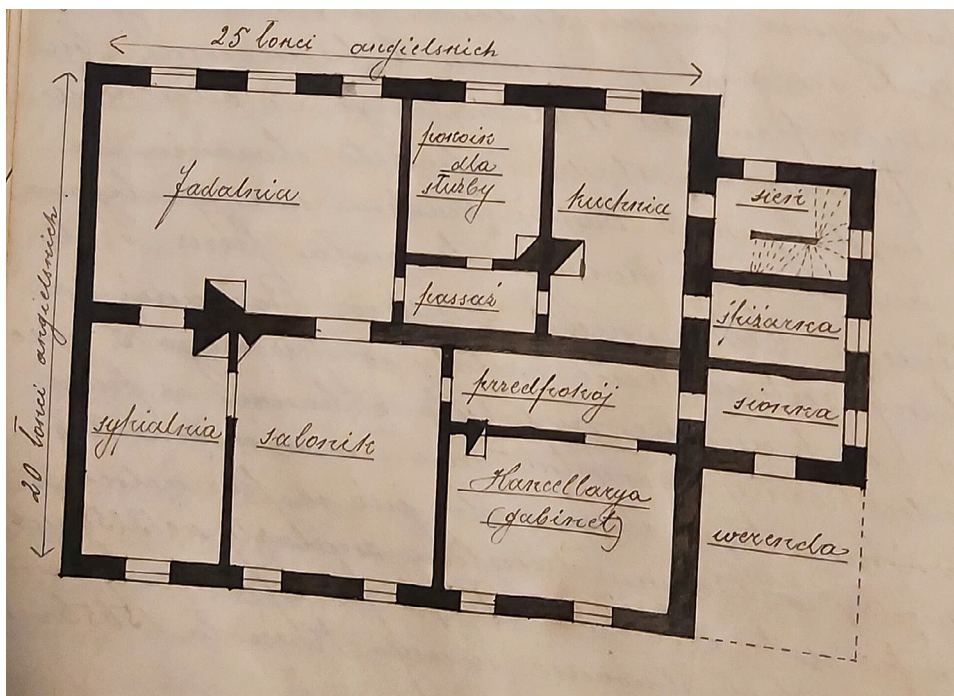 25 łokci angielskich
20 łokci angielskich
Jadalnia
pokoik
dla
służby
kuchnia
sień
passaż
śpiżarka
przedpokój
sionka
sypialnia
salonik
Kancellarya
(gabinet)
weranda